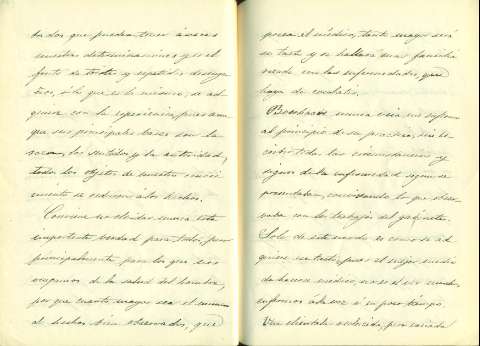 tados que puedan tener á veces
nuestras determinaciones y es el
fruto de tantos y repetidos desenga
ños, ó lo que es lo mismo, se ad-
quiere con la esperiencia, pues aun
que sus principales bases son la
razon, los sentidos y la autoridad,
todos los objetos de nuestro conoci
miento se reducen á los hechos.
Conviene no olvidar nunca esta
importante verdad para todos, pero
principalmente para los que nos
ocupamos de la salud del hombre,
por que cuanto mayor sea el numero
de hechos bien observados, que
posea el médico, tanto mayor será
su tacto y se hallará mas familia
rizado con las enfermedades, que
haya de combatir.
Boerhaave nunca veia sus enfermos
al principio de su practica, sin es-
cribir todas las circunstancias y
signos de la enfermedad segun se
presentaban, comparando lo que obser
vaba con los trabajos del gabinete.
Solo de este modo es como se ad
quiere ese tacto, pues el mejor medio
de hacerse médico, no es el ver muchos
enfermos á la vez ó en poco tiempo.
Una clientela reducida, pero variada